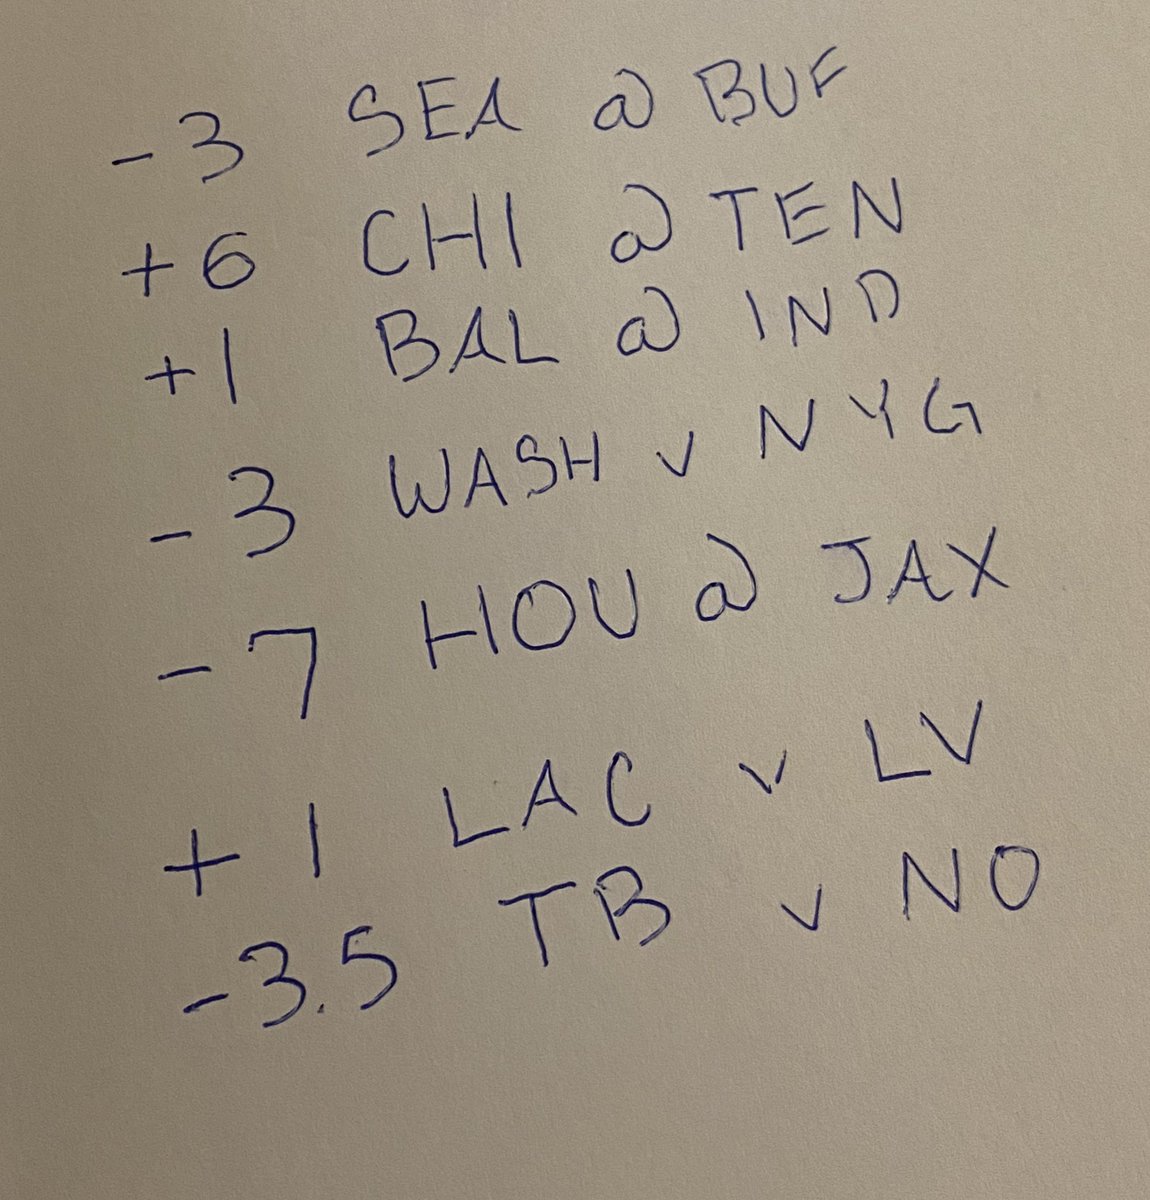 -3 SEA @ BUF
+6 CHI @ TEN
+1 BAL @ IND
-3 WASH v NYG
-7 HOU @ JAX
+1 LAC v LV
-3.5 TB v NO